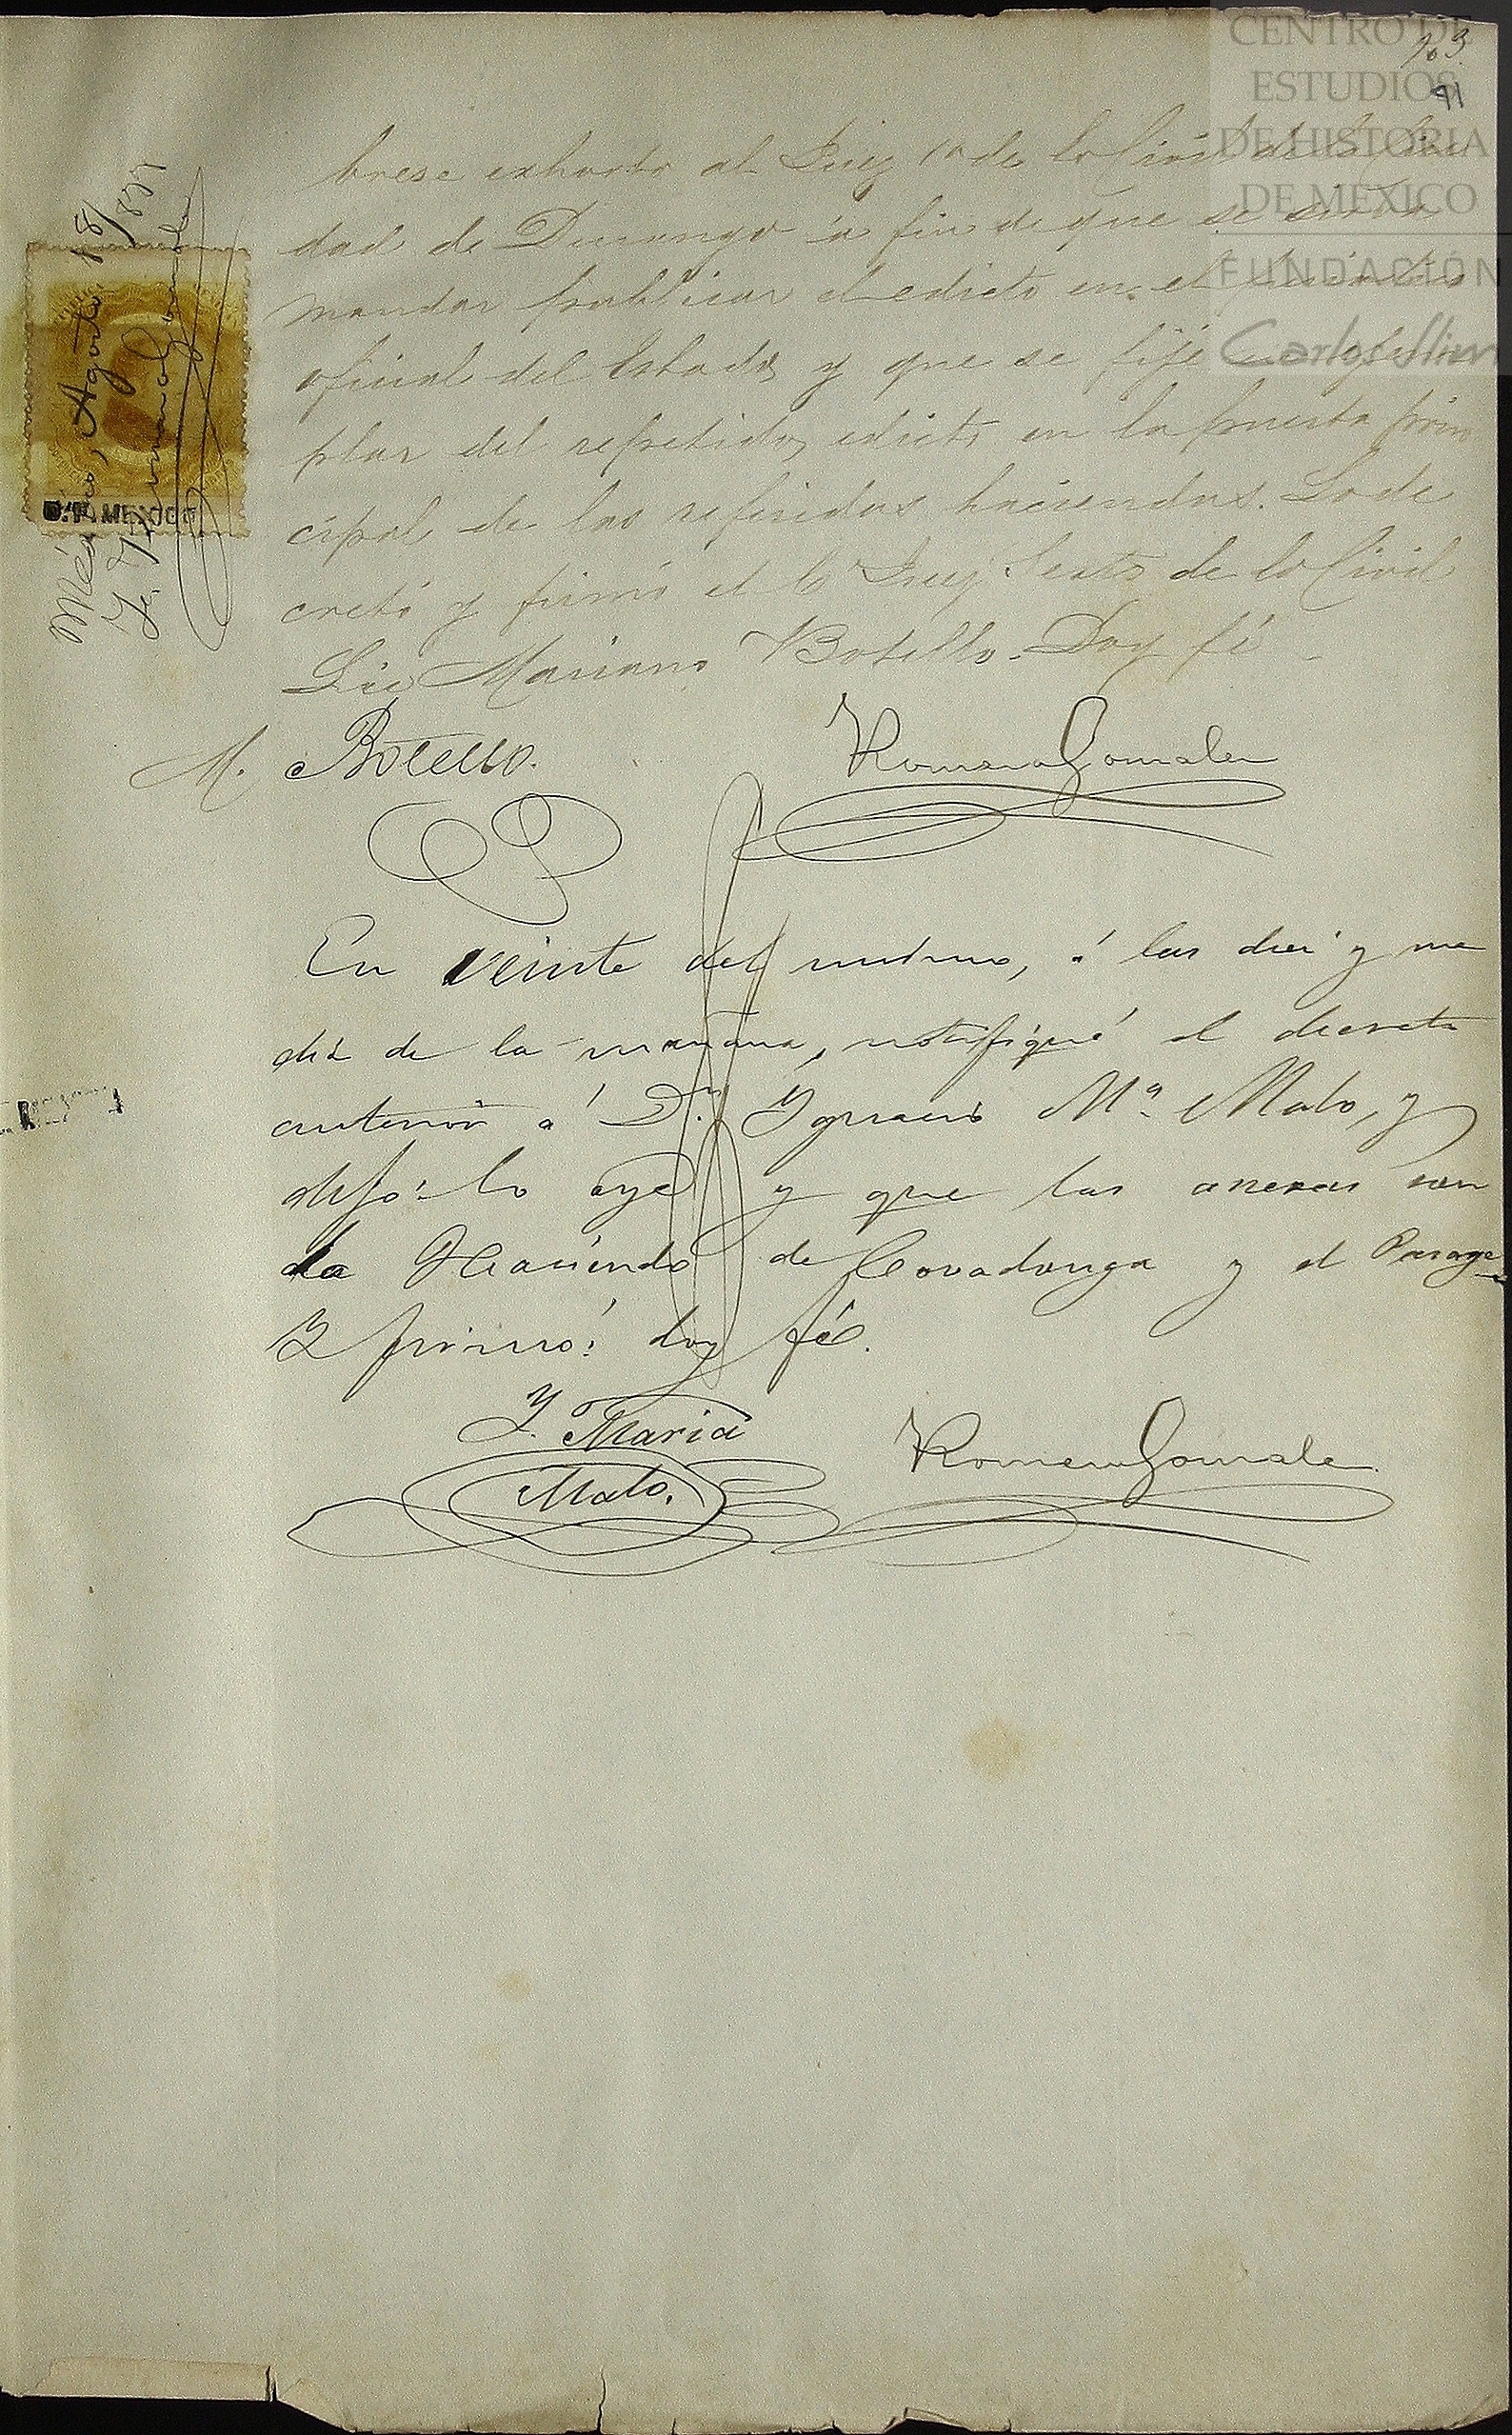 CENTRO DE
ESTUDIOS
DE HISTORIA
DE MEXICO
FUNDACIÓN
Carlos Slim
103.
91
México, Agosto 18/
D.F. MEXICO
brese exhorto al Juez 1o de lo Civil de la Ciu
dad de Durango á fin de que se sirva
mandar publicar el edicto en el periodico
oficial del Estado, y que se fije un ejem
plar del repetido edicto en la puerta prin
cipal de las referidas haciendas. Lo de
cretó y firmó el C Juez Sesto de lo Civil
Lic Mariano Botello. Doy fé
M. Botello.
Romero Gonzalez
En veinte del mismo, á las diez y me
dia de la mañana, notifiqué el decreto
anterior á Dn. Ygnacio Ma. Malo, y
dijo: lo oye y que las anexas son
la Hacienda de Covadonga y el Pasage
Y firmó: doy fé.
Y. Maria
Malo.
Romero Gonzalez